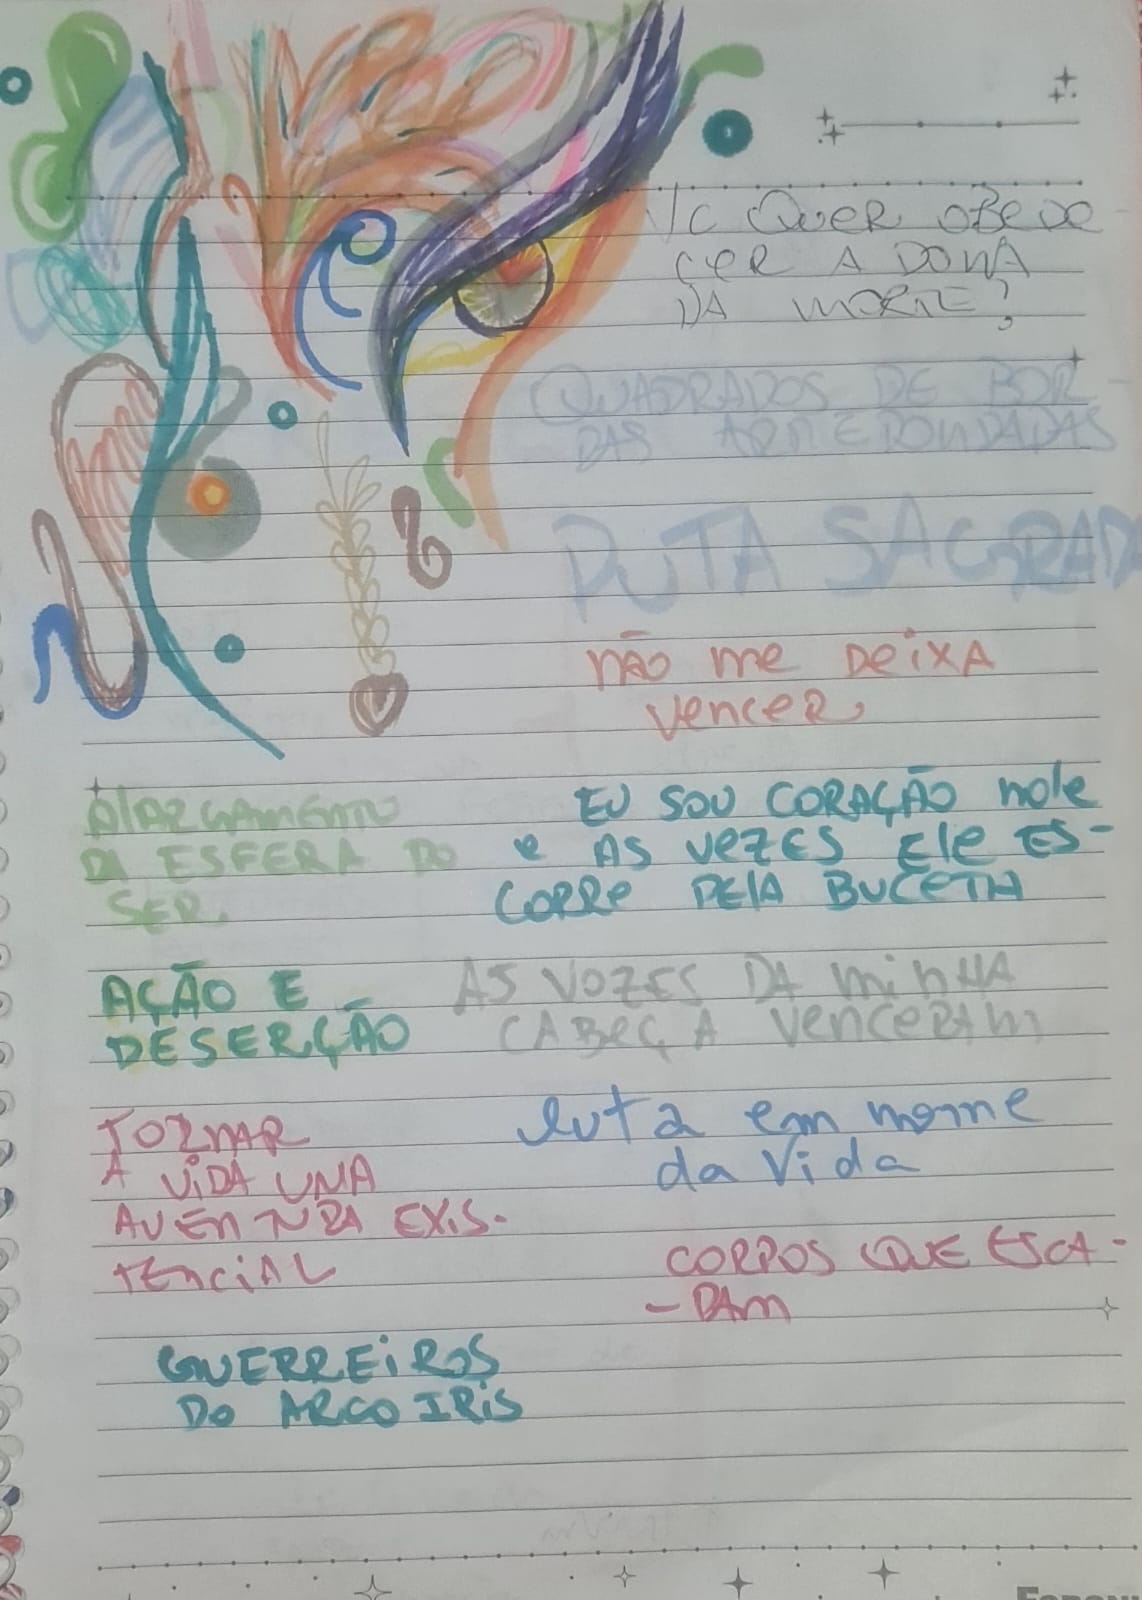 VC QUER OBEDE
CER A DONA
DA MORTE?
QUADRADOS DE BOR-
DAS ARREDONDADAS
PUTA SAGRADA
NÃO me DEIXA
vencer
AlARGAMENTO
DA ESFERA DO
SER.
EU SOU CORAÇÃO mole
e AS VEZES ElE ES-
CORRE PELA BUCETA
AÇÃO E
DESERÇÃO
AS VOZES DA MINHA
CABEÇA VENCERAM
TORNAR
A VIDA UMA
AVENTURA EXIS-
TENCIAL
luta em nome
da Vida
CORPOS QUE ESCA-
-PAM
GUERREIROS
DO ARCO IRIS